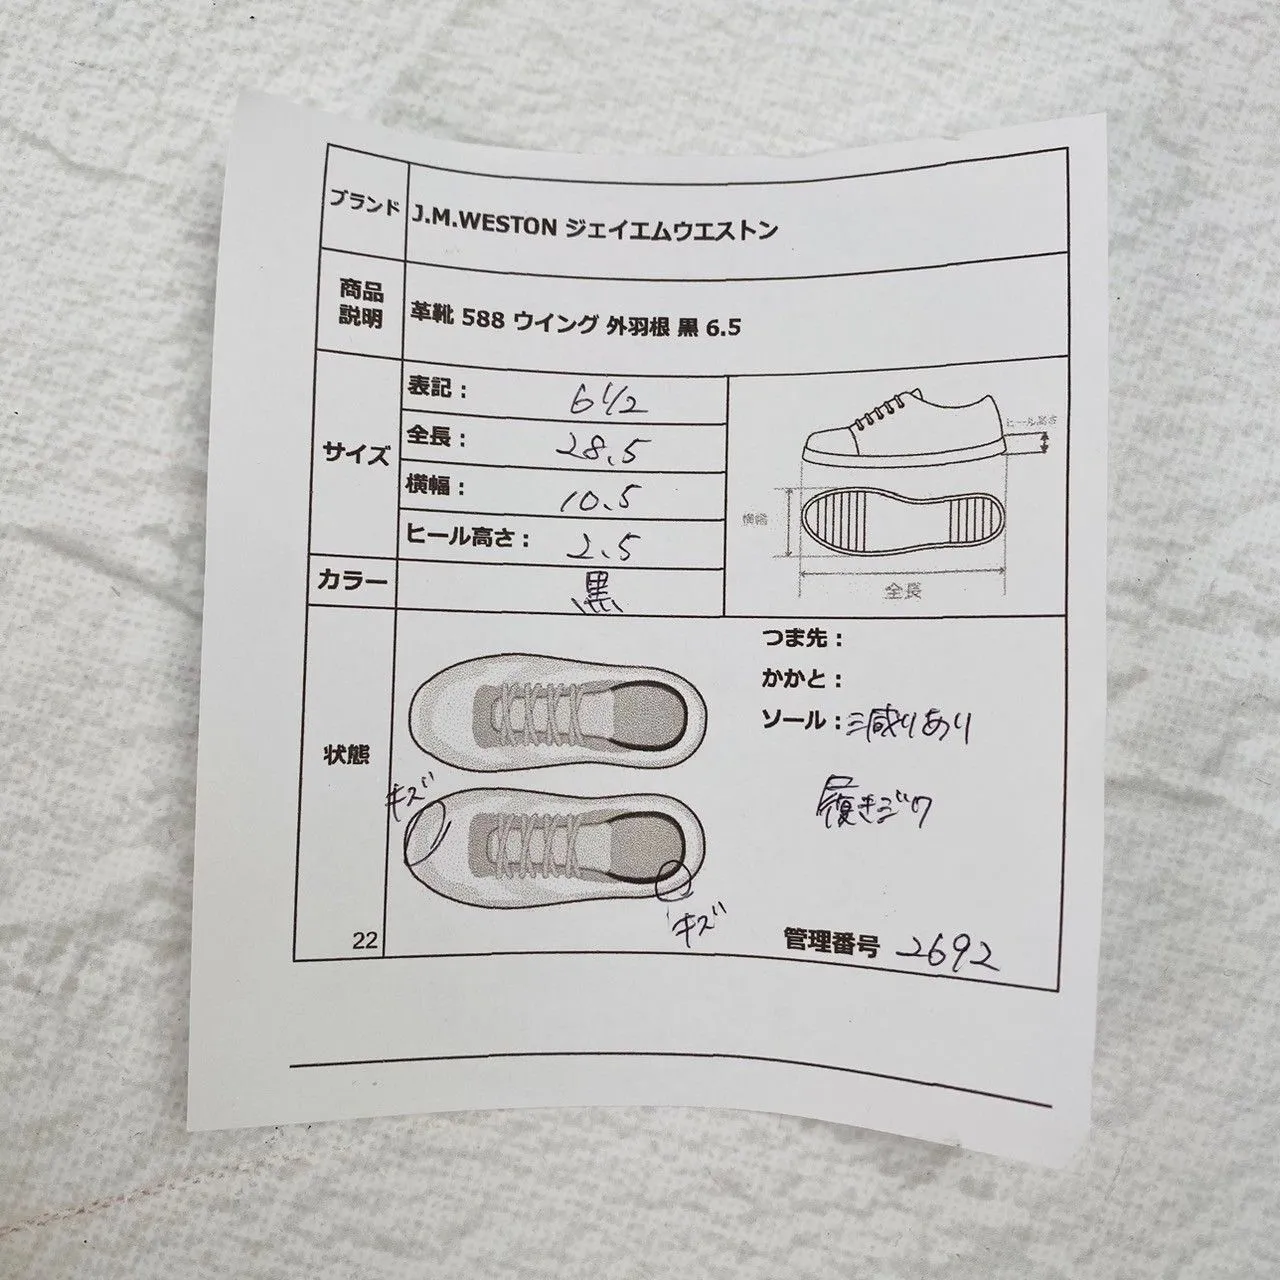 ブランド
J.M.WESTON ジェイエムウエストン
商品
説明
革靴 588 ウイング 外羽根 黒 6.5
サイズ
表記： 6 1/2
全長： 28.5
横幅： 10.5
ヒール高さ： 2.5
ヒール高さ
横幅
全長
カラー
黒
状態
つま先：
かかと：
ソール：減りあり
履きジワ
キズ
キズ
22
管理番号 2692